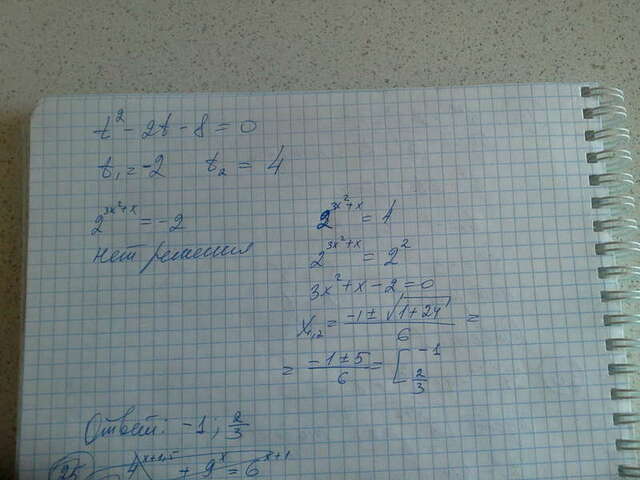 t² - 2t - 8 = 0
t₁ = -2 t₂ = 4
2^(3x²+x) = -2
нет решения
2^(3x²+x) = 4
2^(3x²+x) = 2²
3x² + x - 2 = 0
x₁,₂ = (-1 ± √(1+24))/6 =
= (-1 ± 5)/6 = [ -1
2/3
Ответ: -1; 2/3
25 4^(x+1,5) + 9^x = 6^(x+1)